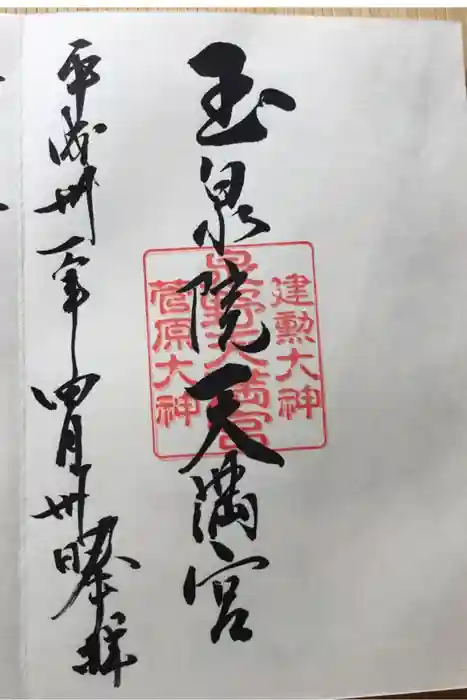 玉泉院天満宮
建勲大神
泉野天満宮
菅原大神
平成卅一年四月卅日奉拝